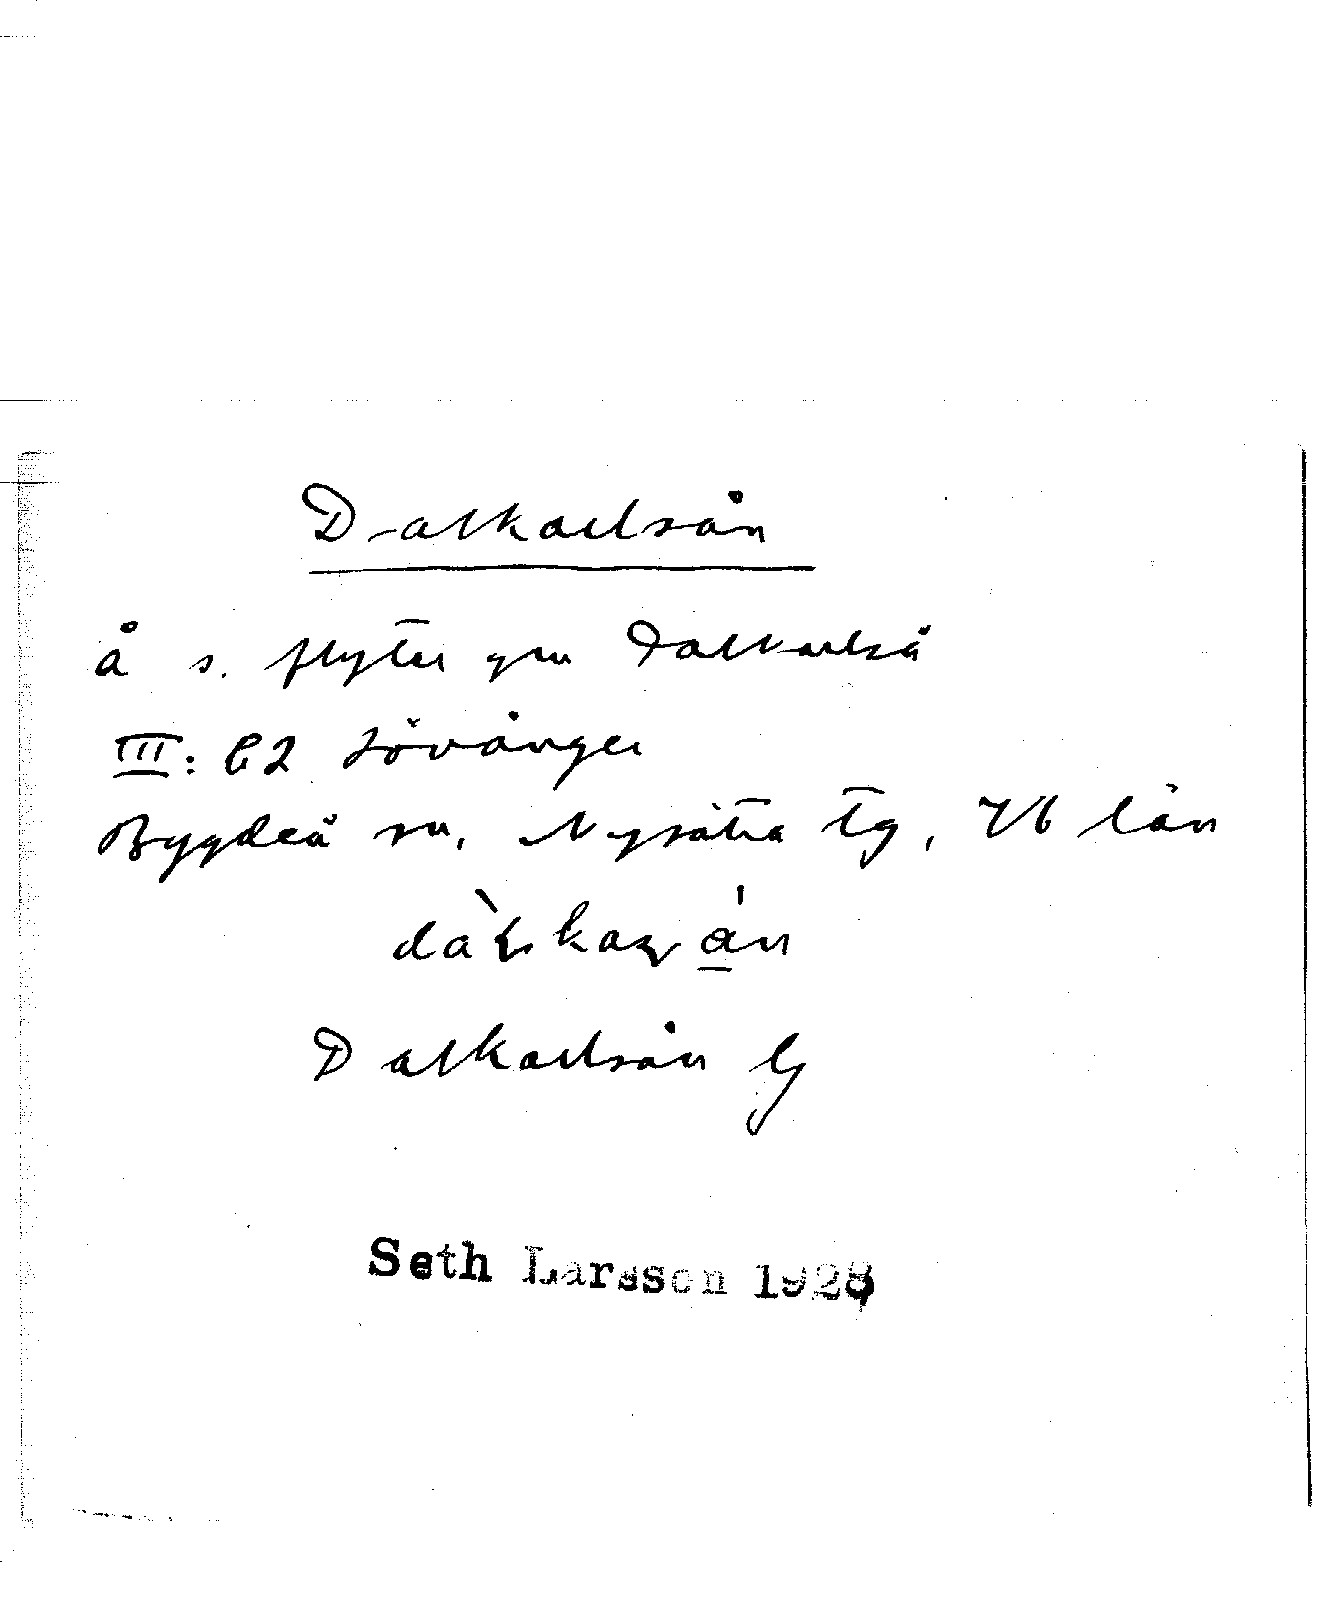 Dalkarlsån
å s. flyter gm Dalkarlså
III: C2 Lövånger
Bygdeå sn, Nysätra tg, Vb län
Dalkarlsån
Seth Larsson 1928